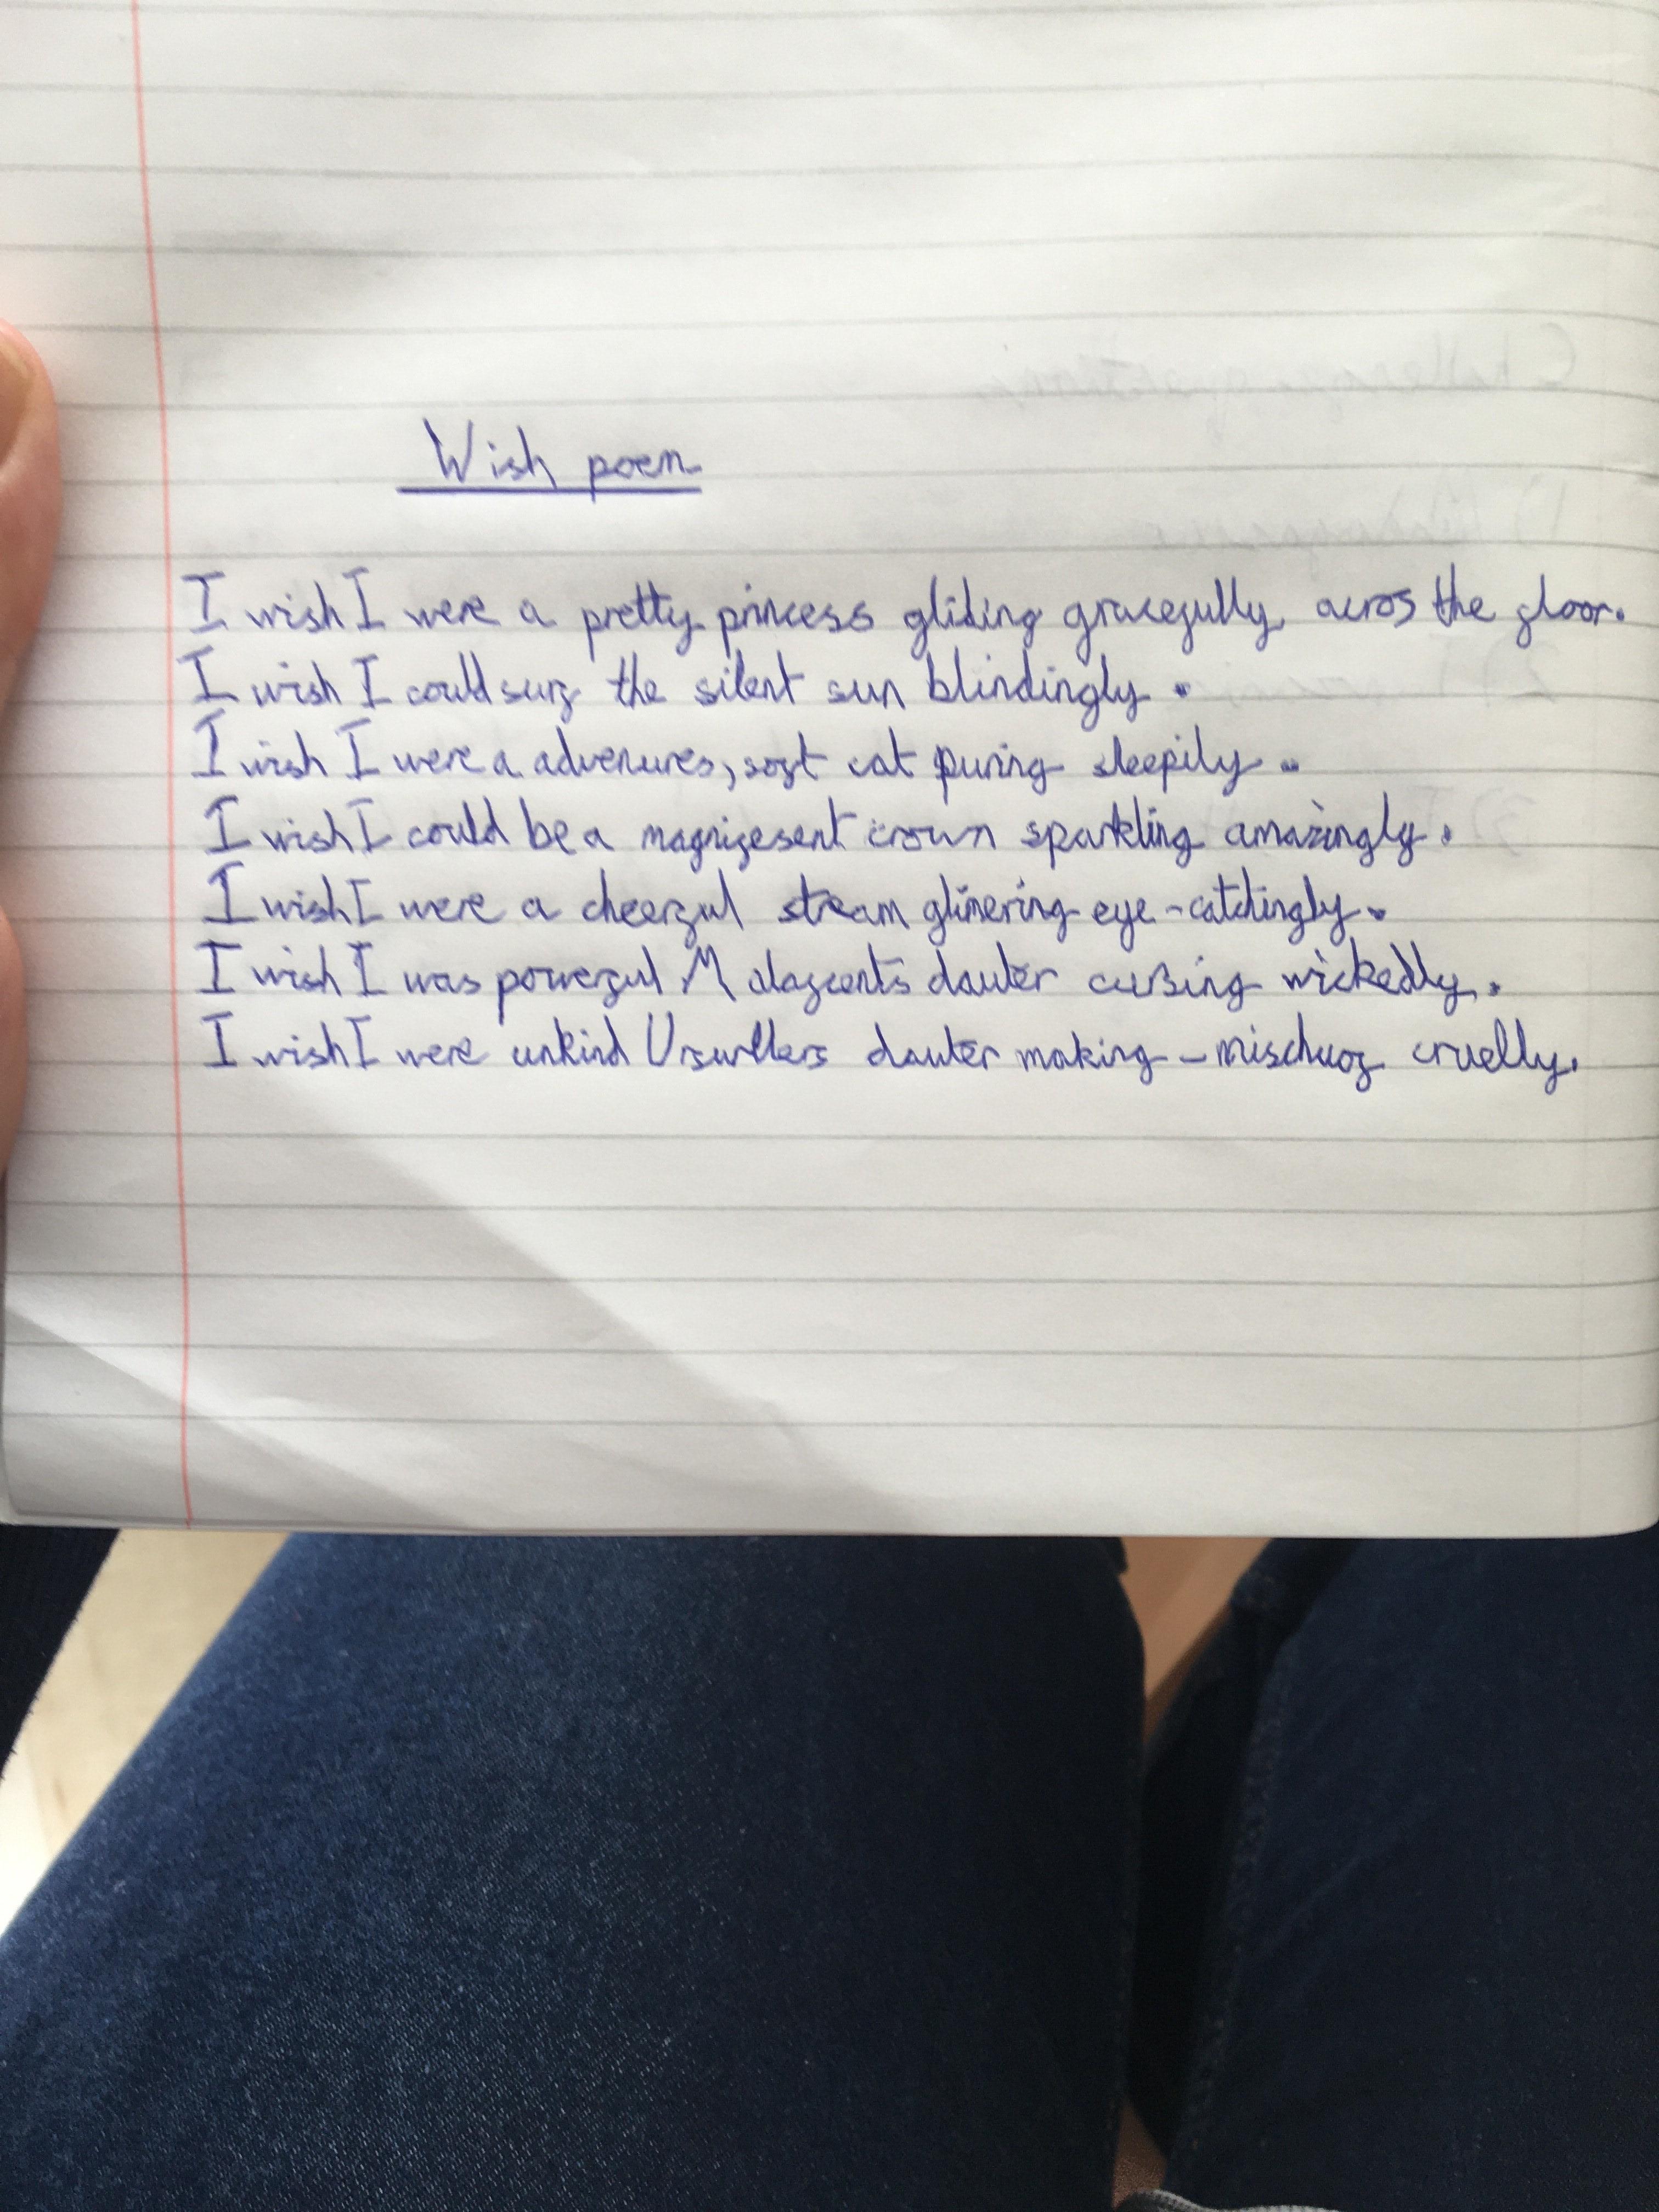 Wish poem
I wish I were a pretty princess gliding gracefully across the floor.
I wish I could surf the silent sun blindingly.
I wish I were a advenures, soft cat puring sleepily.
I wish I could be a magnifesent crown sparkling amazingly.
I wish I were a cheerful stream glimering eye-catchingly.
I wish I was powerful Malafcents dauter cursing wickedly.
I wish I were unkind Ursullers dauter making - mischuof cruelly.